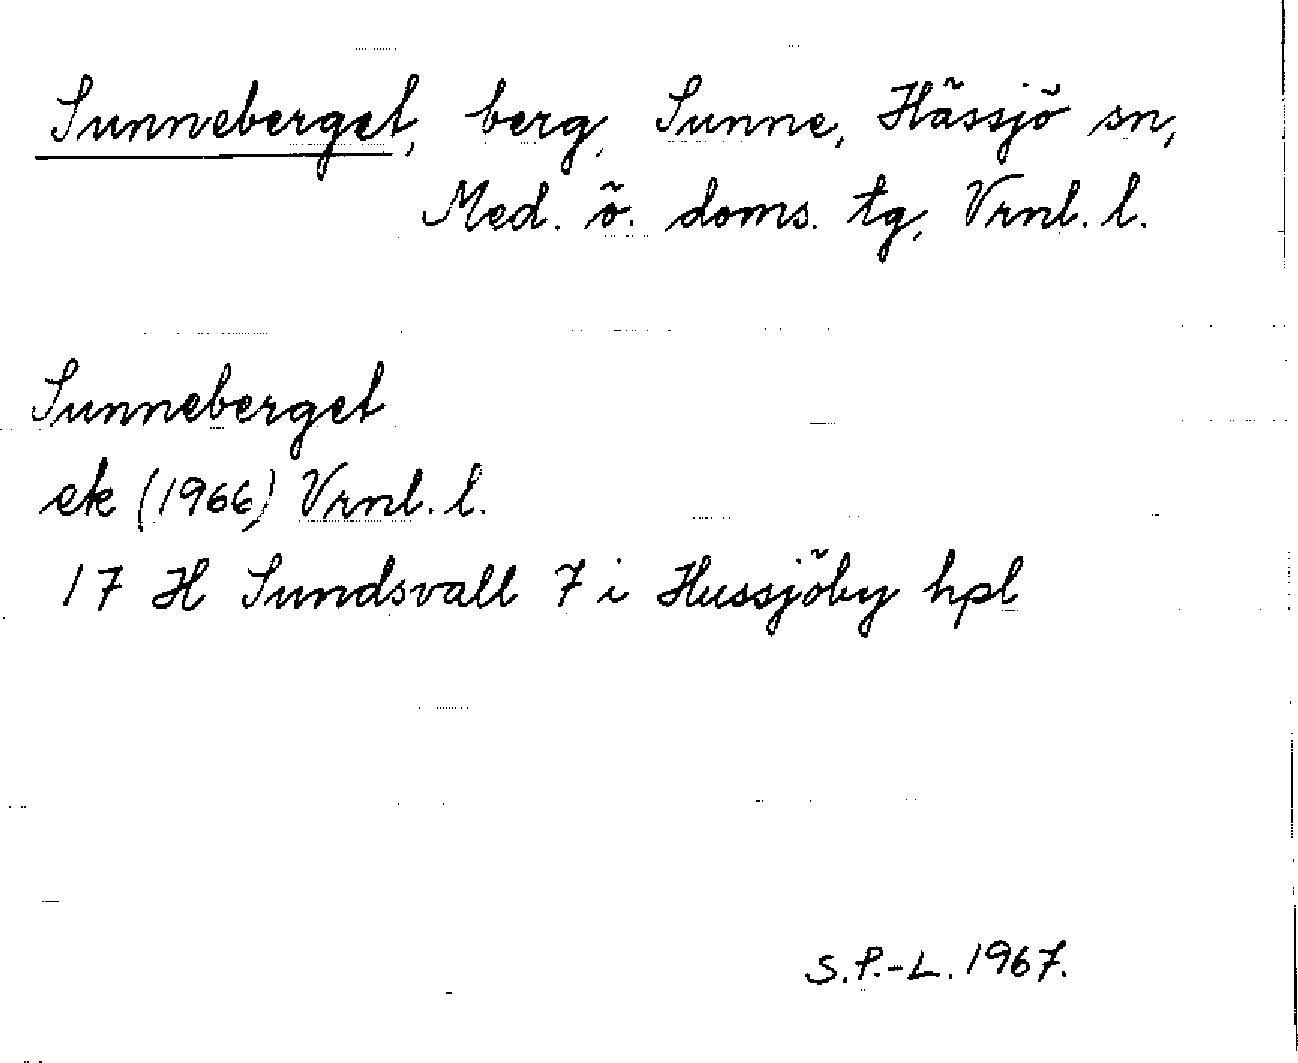 Sunneberget, berg, Sunne, Hässjö sn,
Med. ö. doms. tg, Vrnl. l.
Sunneberget
ek (1966) Vrnl. l.
17 H Sundsvall 7 i Hussjöby hpl
S.P.-L. 1967.